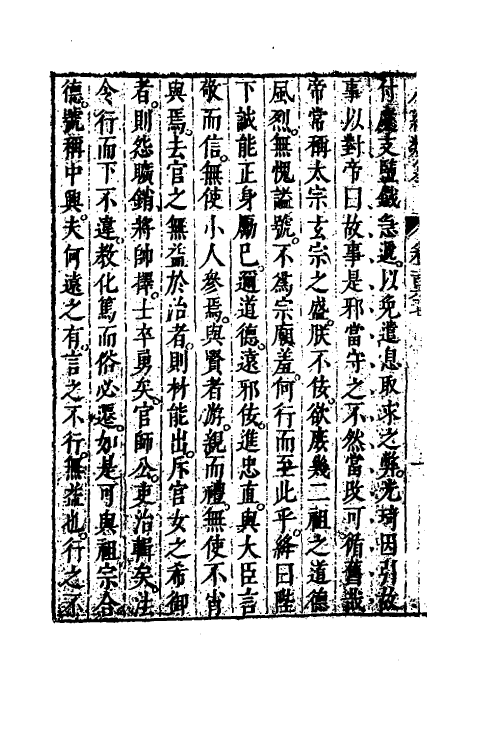 付度支鹽鐵急遞以免遣息取求之弊光琦因引故
事以對帝曰故事是邪當守之不然當改可循舊哉
帝常稱太宗玄宗之盛朕不佞欲庶幾二祖之道德
風烈無愧謚號不爲宗廟羞何行而至此乎絳曰陛
下誠能正身勵己邇道德遠邪佞進忠直與大臣言
敬而信無使小人參焉與賢者游親而禮無使不肖
與焉去官之無益於治者則材能出斥官女之希御
者則怨曠銷將帥擇士卒勇矣官師公吏治輯矣法
令行而下不違教化篤而俗必遷如是可與祖宗合
德號稱中興夫何遠之有言之不行無益也行之不